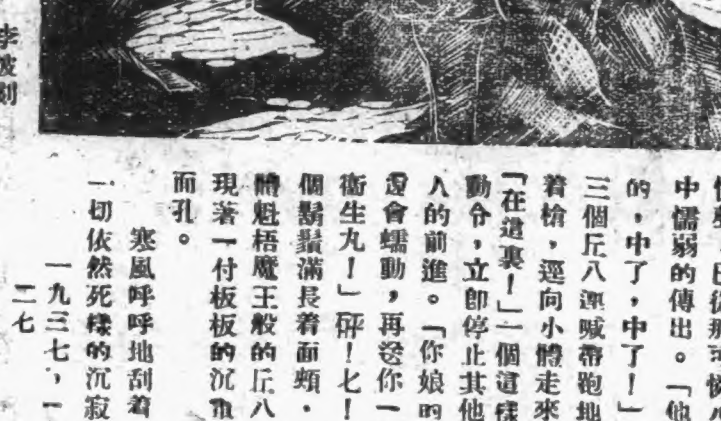 中懦弱的傳出。「他
的,中了,中了!」
三個丘八連喊帶跑地
着槍,逕向小體走來
「在這裏!」一個這樣
動令,立即停止其他
人的前進。「你娘的
還會蠕動,再送你一
衛生九!」砰!七!
個鬍鬚滿長着面頰.
體魁梧魔王般的丘八
現著一付板板的沉重
而孔。
寒風呼呼地刮着
一切依然死樣的沉寂
一九三七、一
二七
李 刻